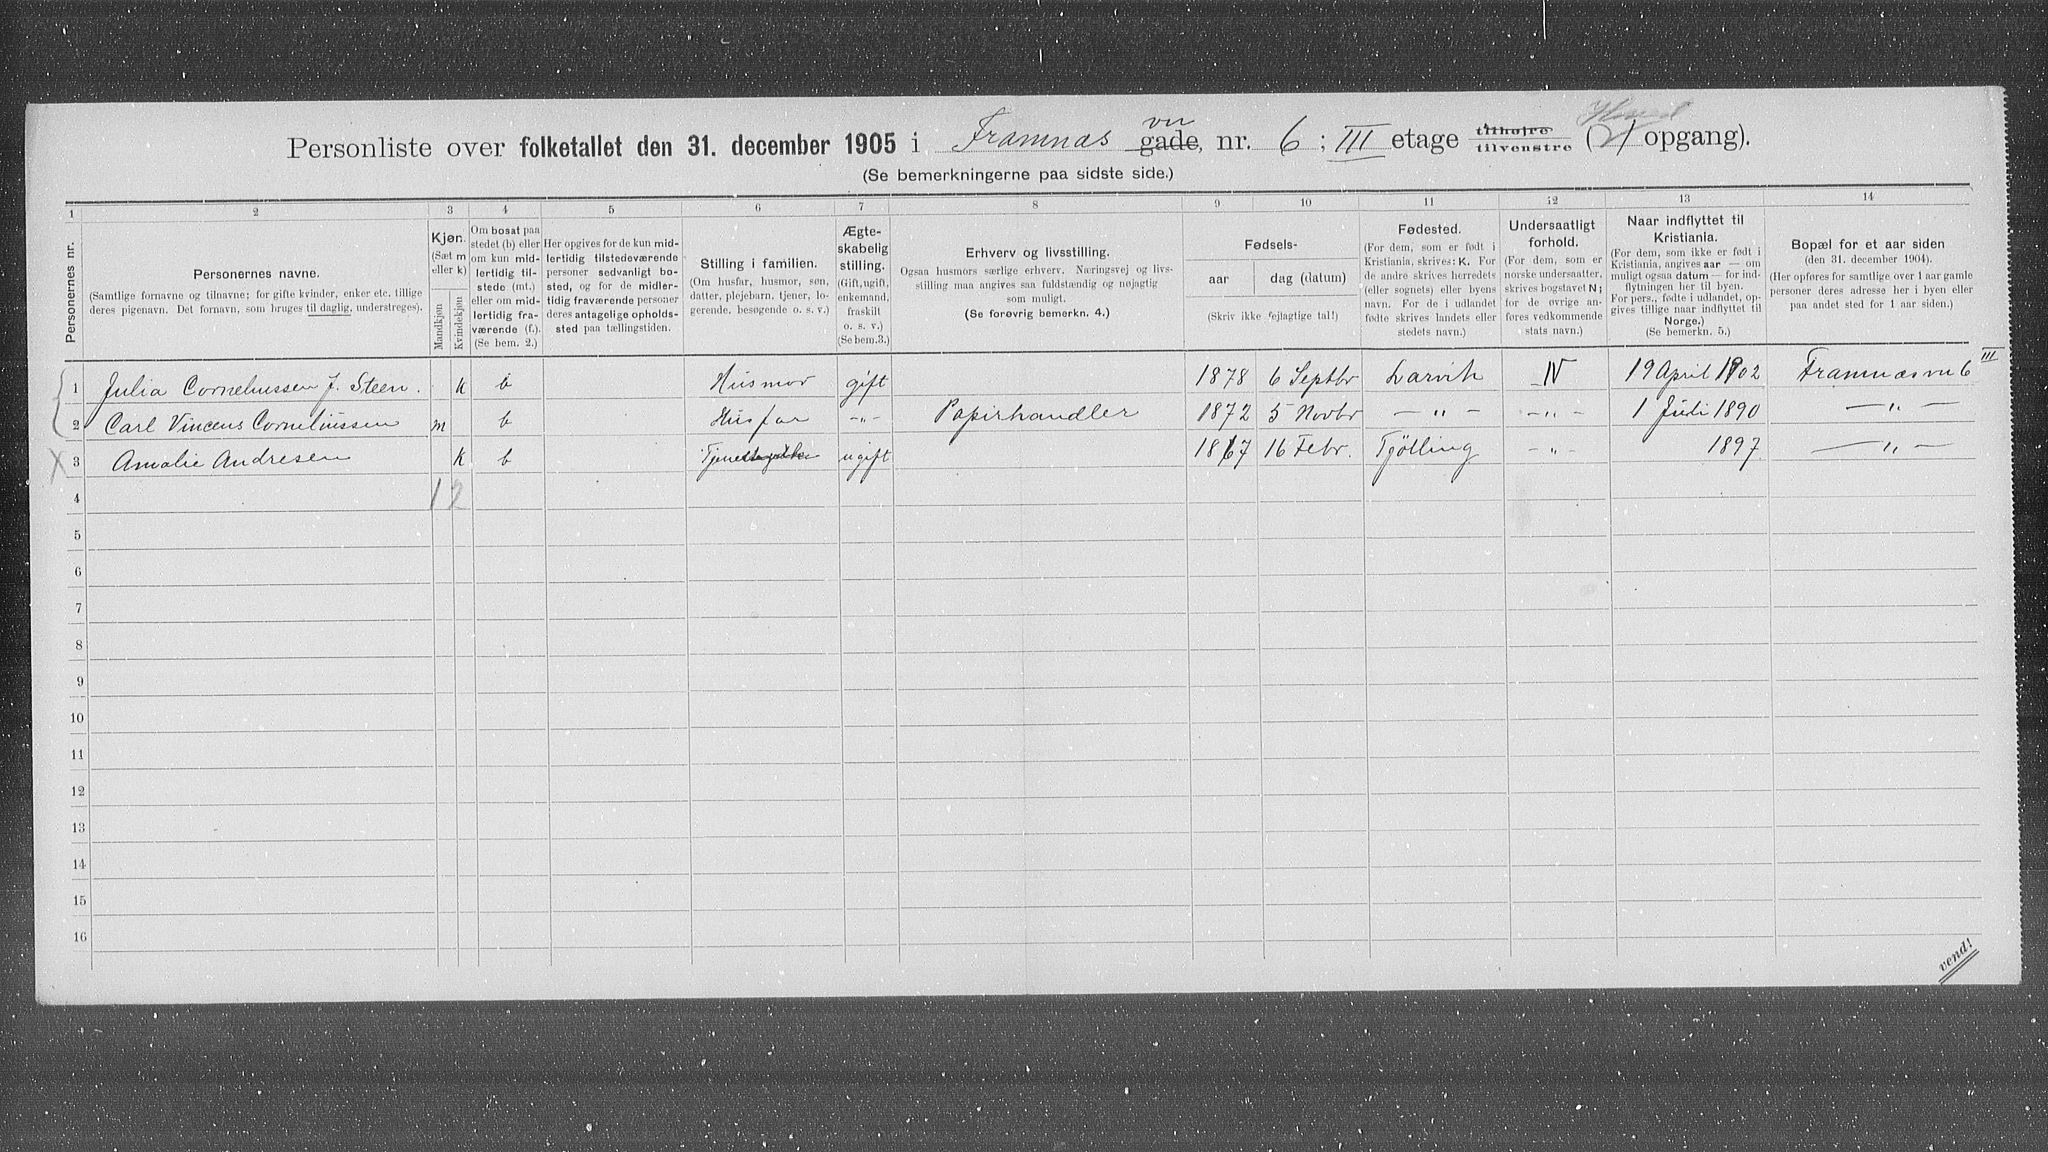 Personliste over folketallet den 31. december 1905 i Framnæs gade, vn nr. 6 ; III etage tilhøjre tilvenstre ( opgang).
(Se bemerkningerne paa sidste side.)
1 2 3 4 5 6 7 8 9 10 11 12 13 14
Personernes nr.
Personernes navne.
(Samtlige fornavne og tilnavne; for gifte kvinder, enker etc. tillige deres pigenavn. Det fornavn, som bruges til daglig, understreges).
Kjøn. (Sæt m eller k)
Mandkjøn Kvindekjøn
Om bosat paa stedet (b) eller om kun midlertidig tilstede (mt.) eller om midlertidig fraværende (f.). (Se bem. 2.)
Her opgives for de kun midlertidig tilstedeværende personer sedvanligt bosted, og for de midlertidig fraværende personer deres antagelige opholdssted paa tællingstiden.
Stilling i familien.
(Om husfar, husmor, søn, datter, plejebarn, tjener, logerende, besøgende o. s. v.)
Ægteskabelig stilling.
(Gift, ugift, enkemand, fraskilt o. s. v.) (Se bem. 3.)
Erhverv og livsstilling.
Ogsaa husmors særlige erhverv. Næringsvej og livsstilling maa angives saa fuldstændig og nøjagtig som muligt.
(Se forøvrig bemerkn. 4.)
Fødsels-
aar dag (datum)
(Skriv ikke fejlagtige tal!)
Fødested.
(For dem, som er født i Kristiania, skrives: K. For de andre skrives herredets (eller sognets) eller byens navn. For de i udlandet fødte skrives landets eller stedets navn.)
Undersaatligt forhold.
(For dem, som er norske undersaatter, skrives bogstavet N; for de øvrige anføres vedkommende stats navn.)
Naar indflyttet til Kristiania.
(For dem, som ikke er født i Kristiania, angives aar — om muligt ogsaa datum — for indflytningen her til byen. For pers., fødte i udlandet, opgives tillige naar indflyttet til Norge.)
(Se bemerkn. 5.)
Bopæl for et aar siden
(den 31. december 1904).
(Her opføres for samtlige over 1 aar gamle personer deres adresse her i byen eller paa andet sted for 1 aar siden.)
1 Julia Corneliussen f. Steen. k b Husmor gift 1878 6 Septbr Larvik N 19 April 1902 Framnæsvn 6 III
2 Carl Vincens Corneliussen m b Husfar -"- Papirhandler 1872 5 Novbr — " — - " - 1 Juli 1890 — " —
3 Amalie Andresen k b Tjenestepike ugift 1867 16 Febr. Tjølling - " - 1897 — " —
4 1 2
5
6
7
8
9
10
11
12
13
14
15
16
vend!